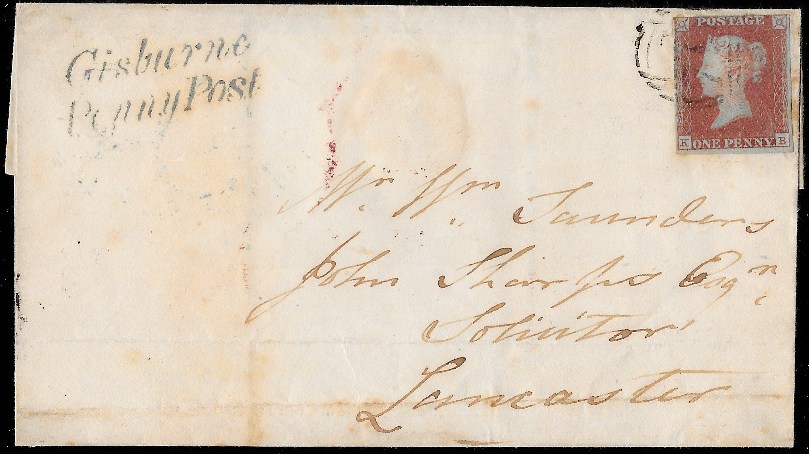 Gisburne
Penny Post
POSTAGE
K B
ONE PENNY
Mr. Wm. Saunders
John Sharps Esqr.
Solicitor
Lancaster